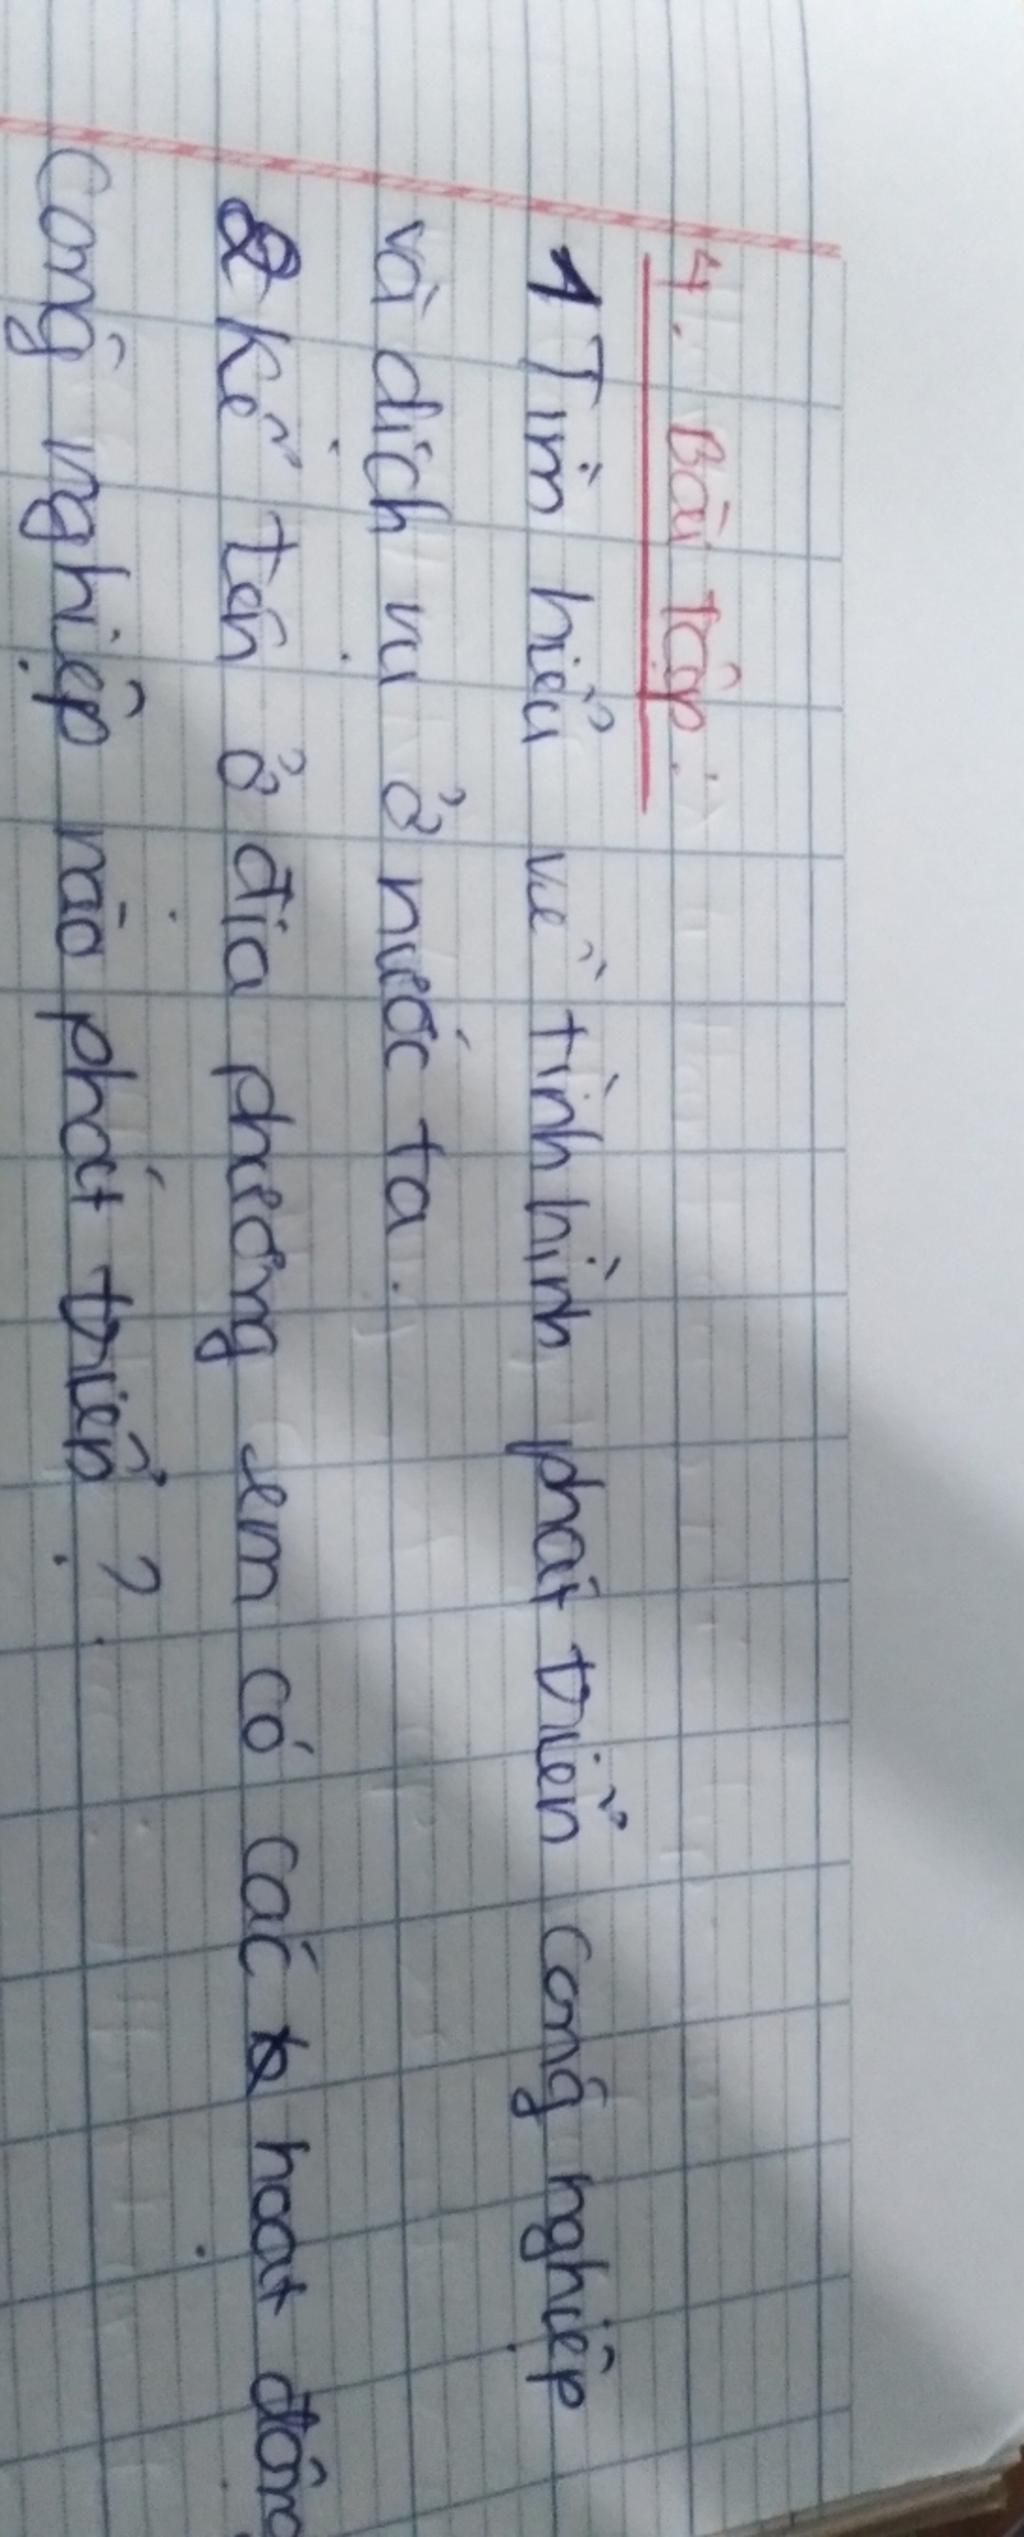 4. Bài Tập:
1 Tìm hiểu về tình hình phát triển công nghiệp
và dịch vụ ở nước ta.
2 kể tên ở địa phương em có các hoạt động
Công nghiệp nào phát triển ?